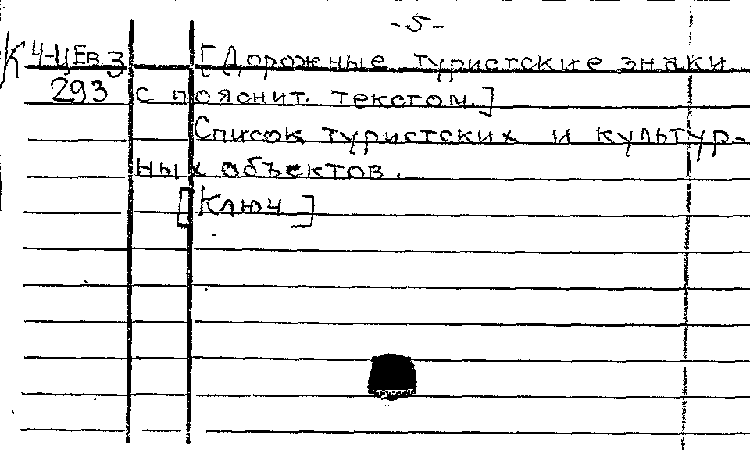 -5-
К 4-Ц Ев 3 [Дорожные туристские знаки
293 с пояснит. текстом.]
Список туристских и культур-
ных объектов.
[Ключ]